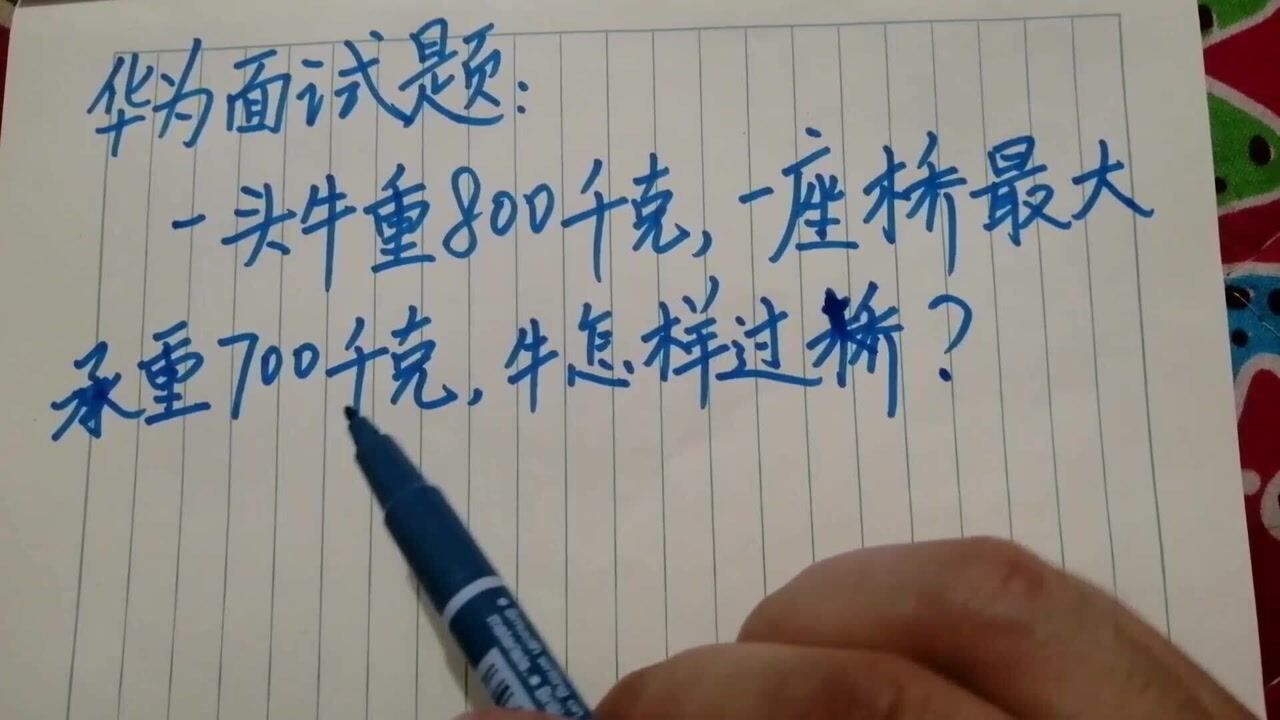 华为面试题:
一头牛重800千克,一座桥最大
承重700千克,牛怎样过桥?